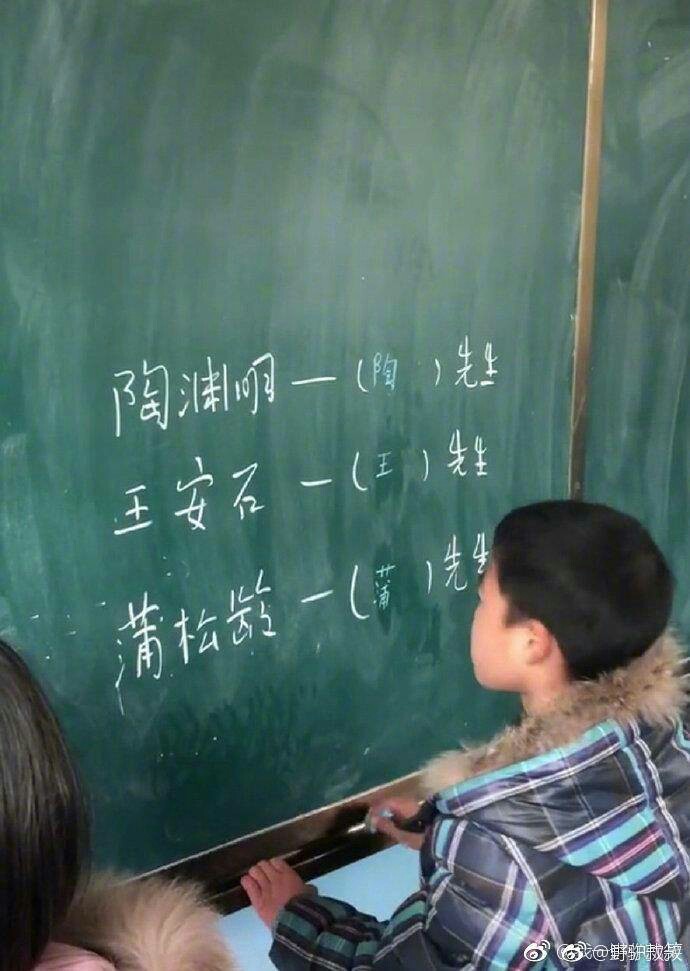 陶渊明—(陶)先生
王安石—(王)先生
蒲松龄—(蒲)先生
@野驴叔叔